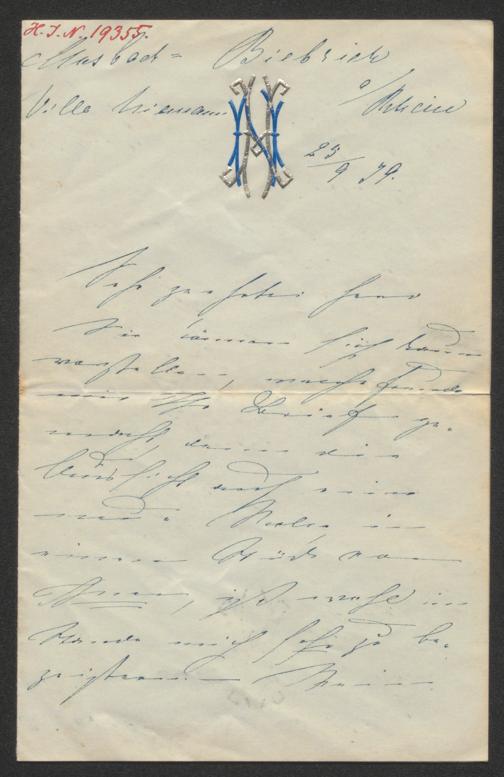 H. I. N. 19355.
Mosbach = Biebrich
Villa Niemann a/Rhein
23/9 79.
Sehr geehrter Herr
Sie können sich kaum
vorstellen, welche Freude
mir Ihr Brief ge-
macht, denn die
Aussicht auf eine
neue Rolle in
einem Stück von
Ihnen, ist wohl im
Stande mich sehr zu be-
geistern. Mein